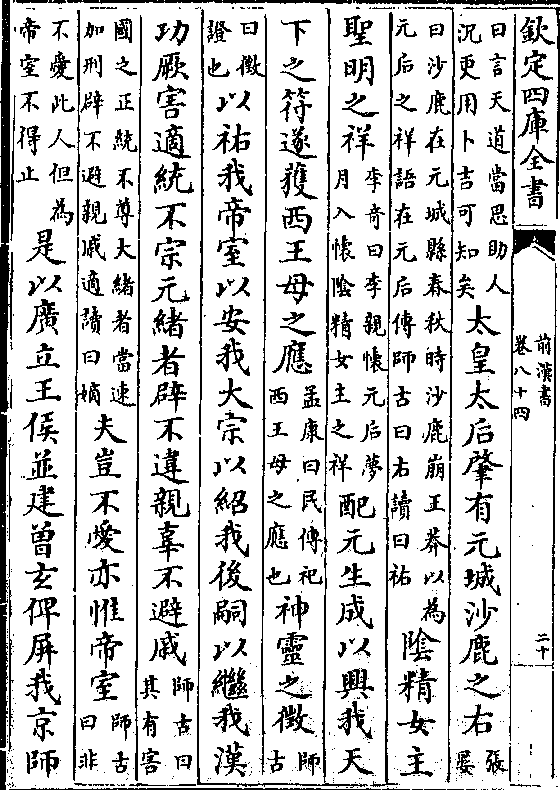 欽定四庫全書
前漢書
卷八十四
二十
曰言天道當思助人
況更用卜吉可知矣
太皇太后肇有元城沙鹿之右
張晏
曰沙鹿在元城縣春秋時沙鹿崩王莽以為
元后之祥語在元后傳師古曰右讀曰祐
陰精女主
聖明之祥
李奇曰李親懷元后夢
月入懷陰精女主之祥
配元生成以興我天
下之符遂獲西王母之應
孟康曰民傳祀
西王母之應也
神靈之徵
師古
曰徵
證也
以祐我帝室以安我大宗以紹我後嗣以繼我漢
功厥害適統不宗元緒者辟不違親辜不避戚
師古曰
其有害
國之正統不尊大緒者當速
加刑辟不避親戚適讀曰嫡
夫豈不愛亦惟帝室
師古
曰非
不愛此人但為
帝室不得止
是以廣立王侯並建曾玄俾屏我京師